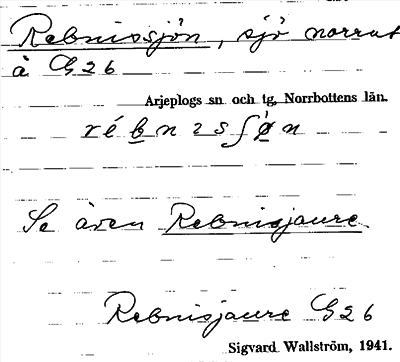 Rebnissjön, sjö norrut
å G 26
Arjeplogs sn och tg, Norrbottens län.
Se även Rebnisjaure.
Rebnisjaure G 26
Sigvard Wallström, 1941.